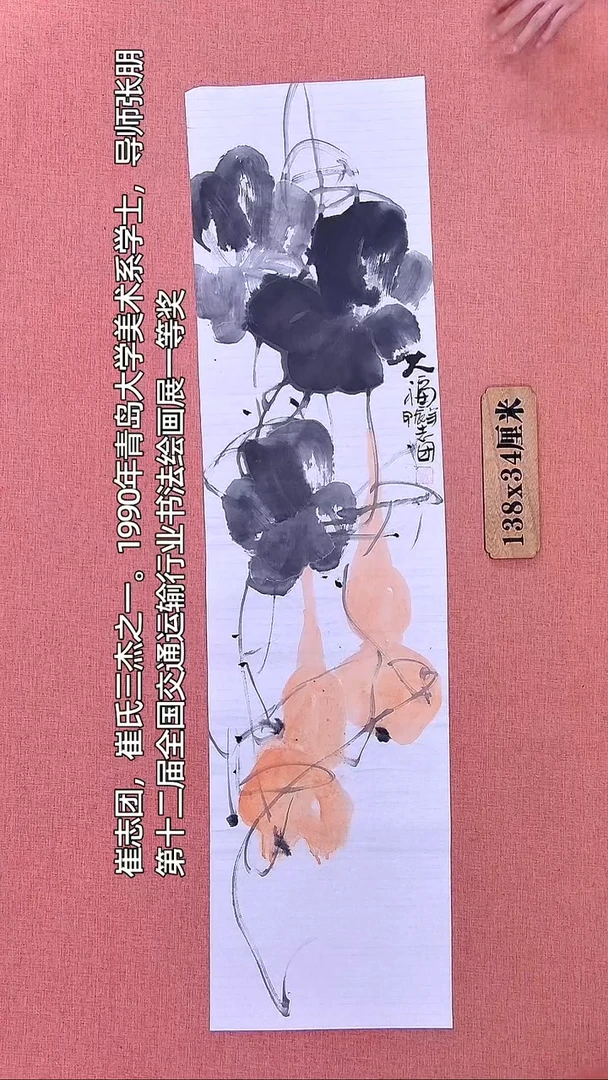 崔志团，崔氏三杰之一。1990年青岛大学美术系学士，导师张朋
第十二届全国交通运输行业书法绘画展一等奖
大福
志团
138x34厘米